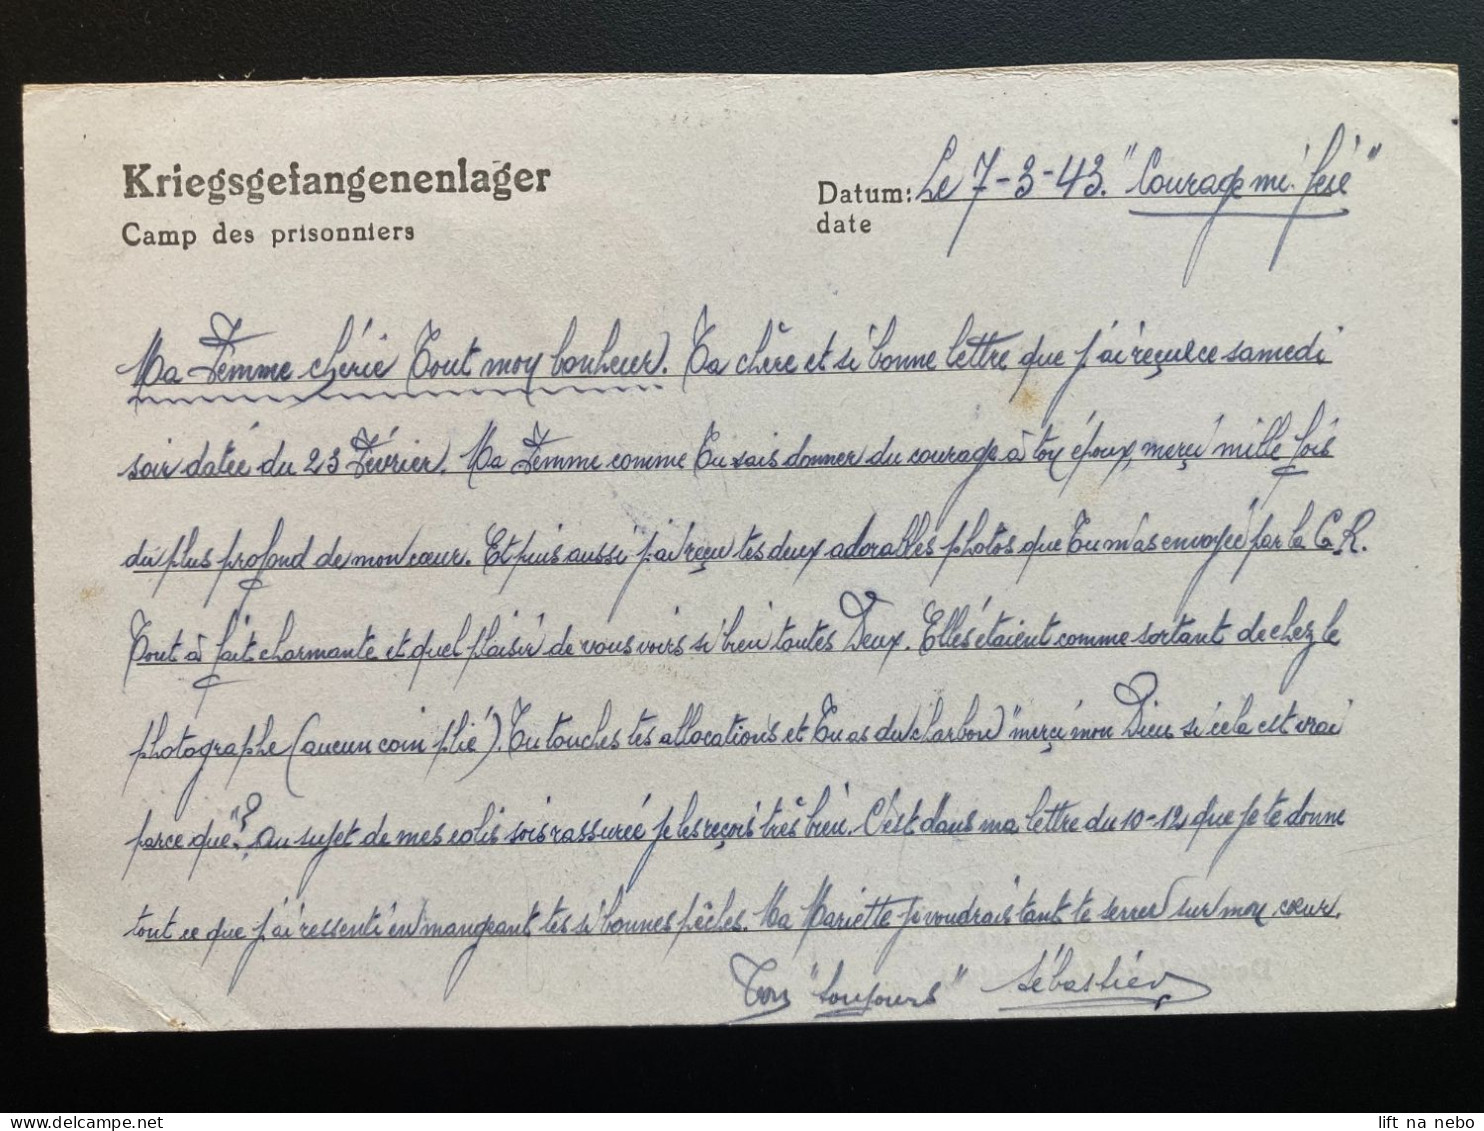 Kriegsgefangenenlager
Camp des prisonniers
Datum: Le 7-3-43. "Courage mé fésé"
date
Ma Femme chérie Tout moy bonheur. Ta chère et si bonne lettre que j'ai reçue ce samedi
soir datée du 23 Février. Ma Femme comme Tu sais donner du courage à toy époux, merçi mille fois
du plus profond de mon cœur. Et puis aussi j'ai reçu tes deux adorables photos que Tu m'as envoyée par la C.R.
Tout à fait charmante et quel plaisir de vous voirs si bien toutes Deux. Elles étaient comme sortant de chez le
photographe (aucun coin plié). Tu touches tes allocations et Tu as du charbon "merçi mon Dieu si cela est vrai
parce que"? Au sujet de mes colis sois rassurée je les reçois très bien. C'est dans ma lettre du 10-12 que je te donne
tout ce que j'ai ressenti en mangeant tes si bonnes pêches. Ma Mariette je voudrais tant te serrer sur moy cœur.
Toy "toujours" Sébastien
lift na nebo